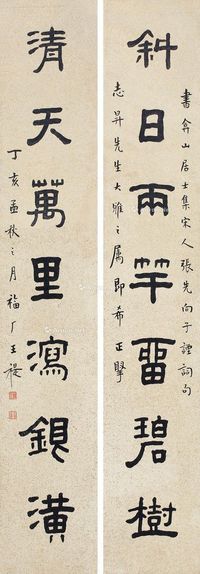 書弇山居士集宋人張先向子諲詞句
斜日兩竿畱碧樹
志昇先生大雅之属即希正
清天萬里瀉銀潢
丁亥孟秋之月福厂王禔